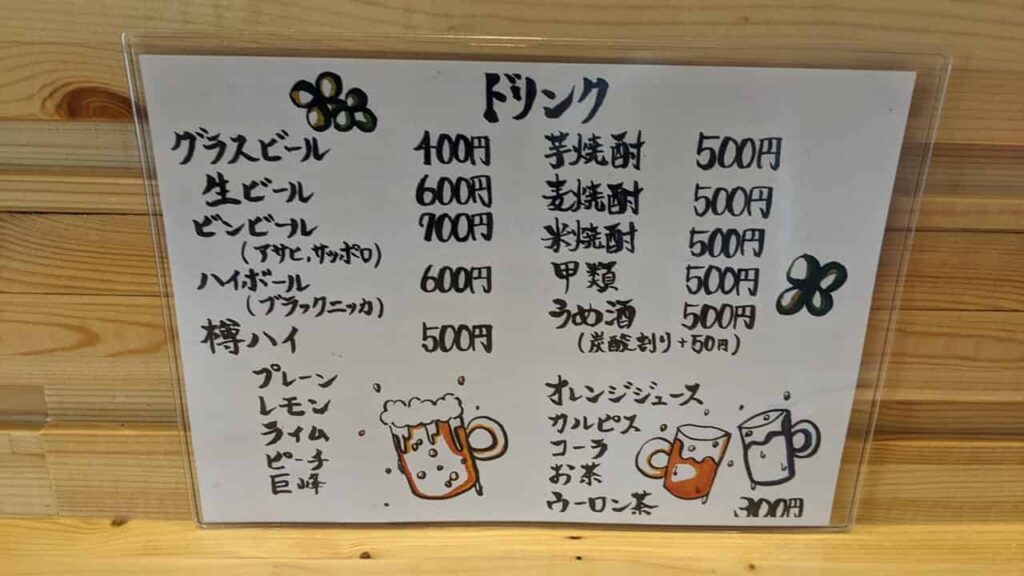 ドリンク
グラスビール 400円
生ビール 600円
ビンビール 700円
(アサヒ,サッポロ)
ハイボール 600円
(ブラックニッカ)
樽ハイ 500円
プレーン
レモン
ライム
ピーチ
巨峰
芋焼酎 500円
麦焼酎 500円
米焼酎 500円
甲類 500円
うめ酒 500円
(炭酸割り+50円)
オレンジジュース
カルピス
コーラ
お茶
ウーロン茶 300円